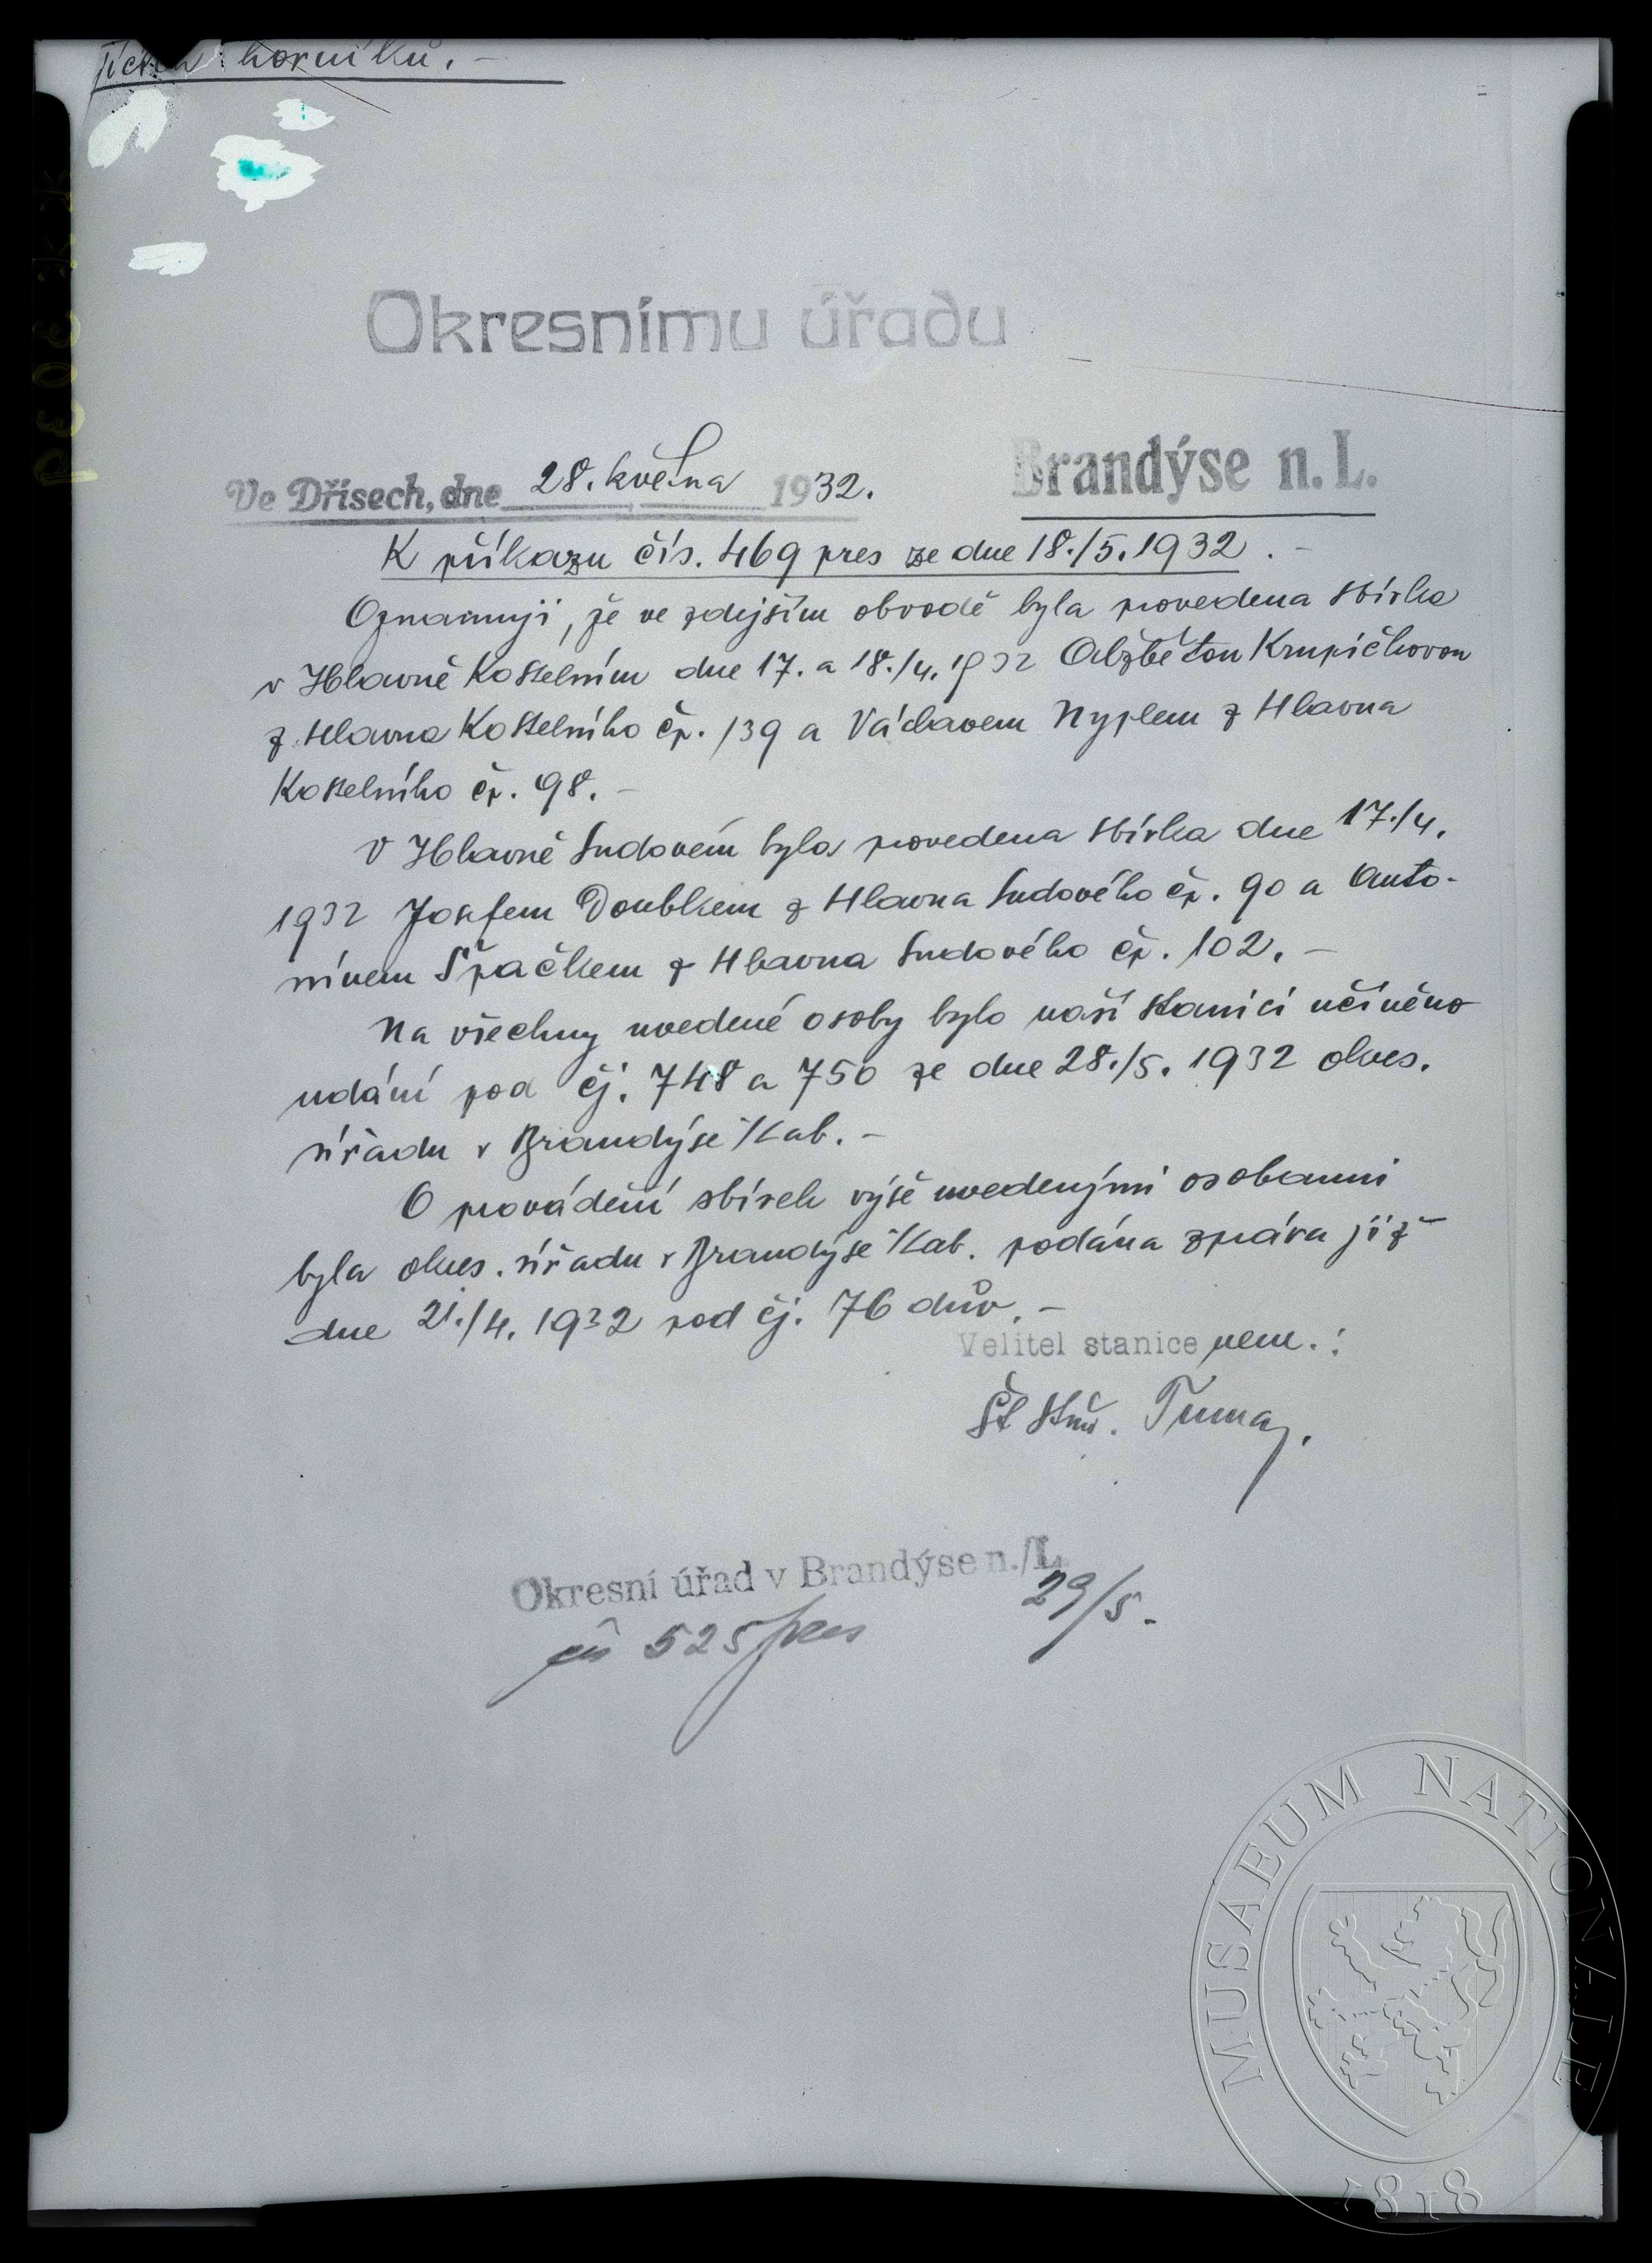 horníků. –
Okresnímu úřadu
Brandýse n. L.
Ve Dřísech, dne 28. května 1932.
K příkazu čís. 469 pres ze dne 18./5. 1932. –
Oznamuji, že ve zdejším obvodě byla provedena sbírka
v Hlavně Kostelním dne 17. a 18./4. 1932 Alžbětou Krupičkovou
z Hlavna Kostelního čp. 139 a Václavem Nyplem z Hlavna
Kostelního čp. 98. –
V Hlavně Sudovém byla provedena sbírka dne 17./4.
1932 Josefem Doublkem z Hlavna Sudového čp. 90 a Anto-
nínem Špačkem z Hlavna Sudového čp. 102. –
Na všechny uvedené osoby bylo naší stanicí učiněno
udání pod čj. 748 a 750 ze dne 28./5. 1932 okres.
úřadu v Brandýse n/Lab. –
O provádění sbírek výše uvedenými osobami
byla okres. úřadu v Brandýse n/Lab. podána zpráva již
dne 21./4. 1932 pod čj. 76 dův. –
Velitel stanice nem.:
Št. stm. Tuma,
Okresní úřad v Brandýse n./L.
29/5.
525 pres
MUSAEUM NATIONALE
1818